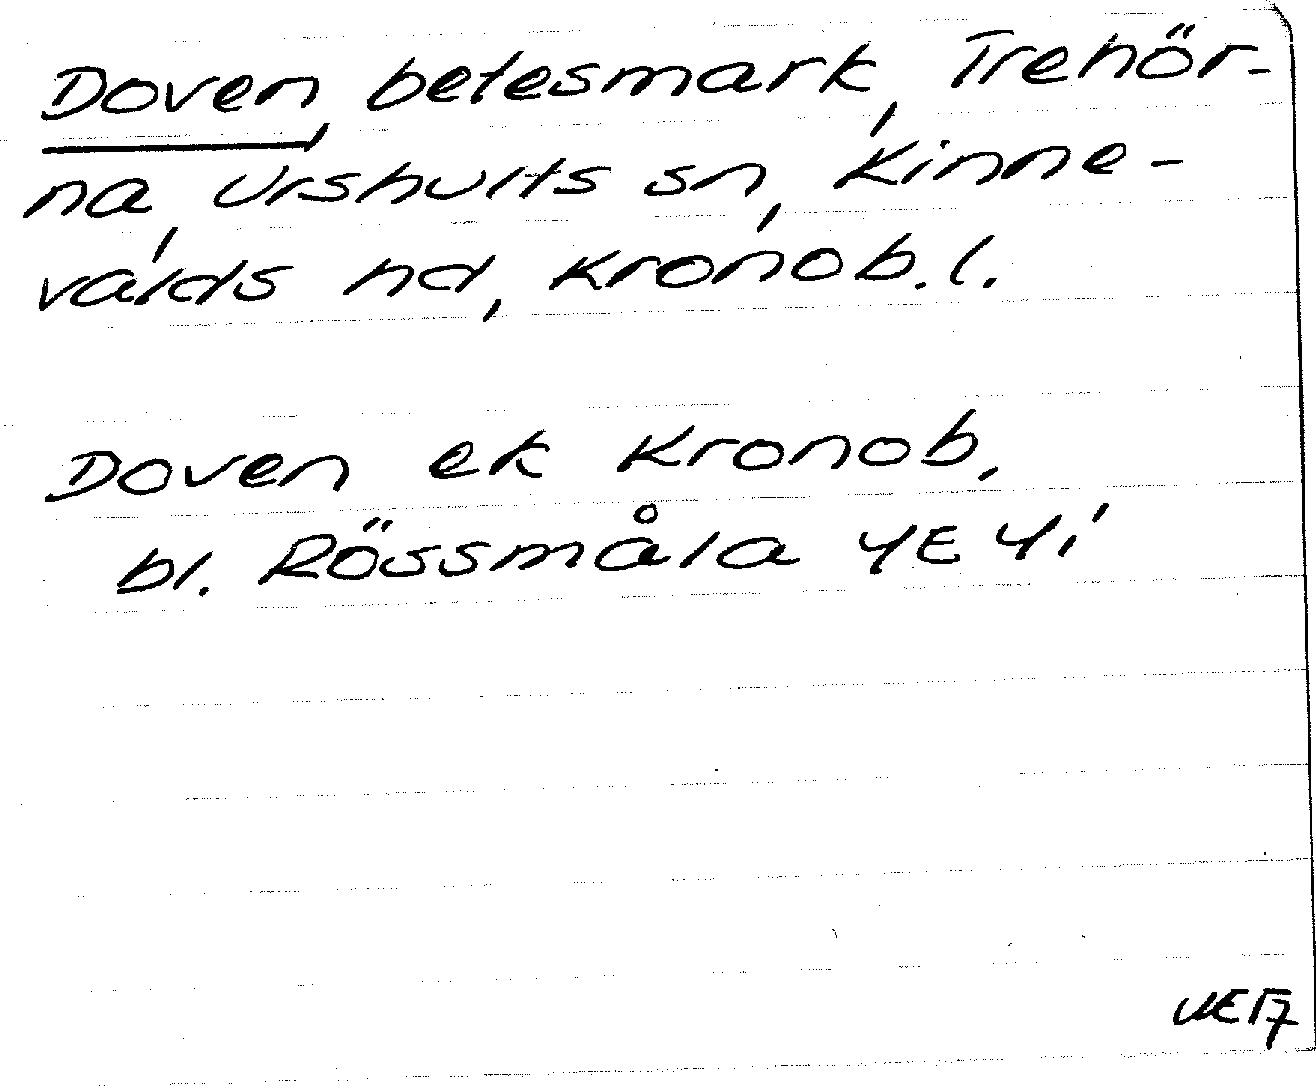 Doven, betesmark, Trehör-
na, Urshults sn, Kinne-
valds hd, Kronob. l.
Doven ek Kronob.
bl. Rössmåla 4E 4i